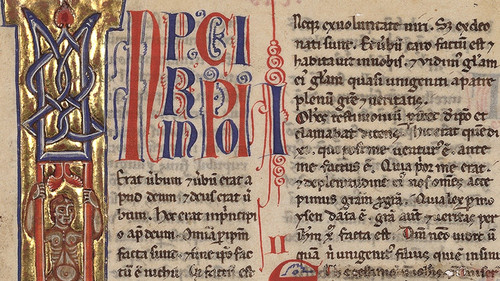 N P CI
R PI
IN O
Erat ũbum ⁊ ũbũ erat a
pud deum ⁊ deus erat ũ
bum. Hoc erat inprĩcipi
o apud deum. Omĩa p ipm̃
facta sunt. ⁊ sine ipso fac
tũ ẽ nichil. Qđ factũ est
Neq; ex uoluntate uiri. Sꝫ ex deo
nati sunt. Et ũbũ caro factũ est ⁊
habitauit in nobis. ⁊ uidimꝰ glam̃
eiꝰ glam̃ quasi unigeniti a patre
plenũ gr̃e ⁊ ueritatis.
testimonium phibet de ipõ et
clamabat dicens. Hic erat quẽ di
xi. qui post me uenturꝰ ẽ. ante
me factus ẽ. Quia por me erat.
⁊ de plenitudine eiꝰ nos om̃es acce
pimus gram̃ p gra. Quia lex p mo
ysen data ẽ. gr̃a aut̃ ⁊ ueritas per
ihm̃ xp̃m facta est. Dm̃ nemo uidit ũ
quã n̊ unigenitꝰ filius. qui est in sinu
II